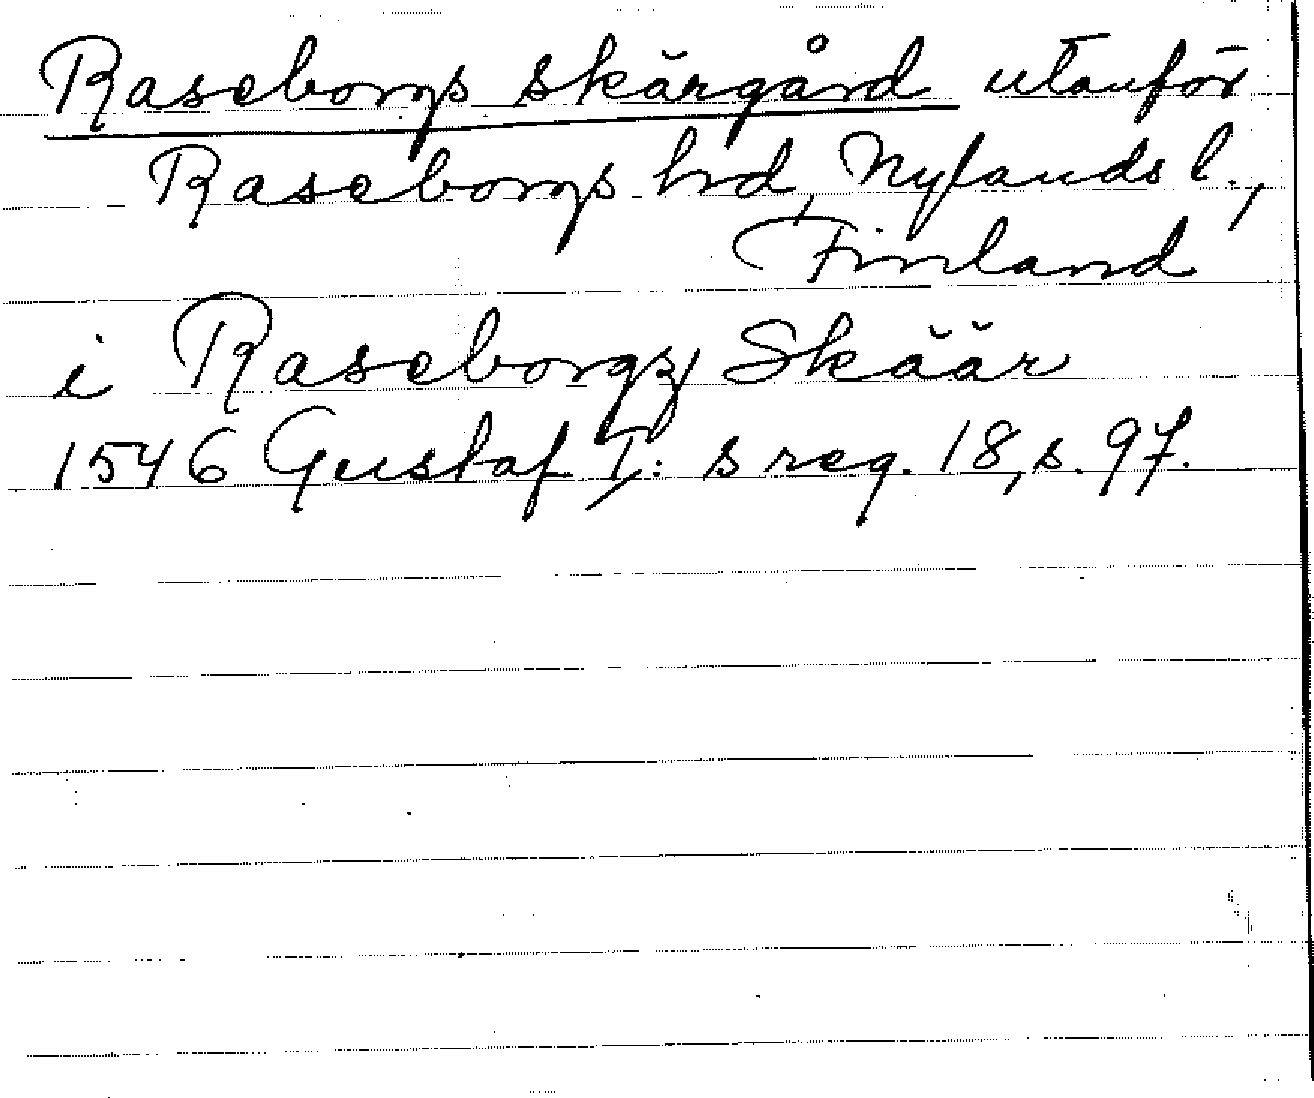 Raseborgs skärgård utanför
Raseborgs hrd, Nylands l.,
Finland
i Raseborgz Skäär
1546 Gustaf I: s reg. 18, s. 97.